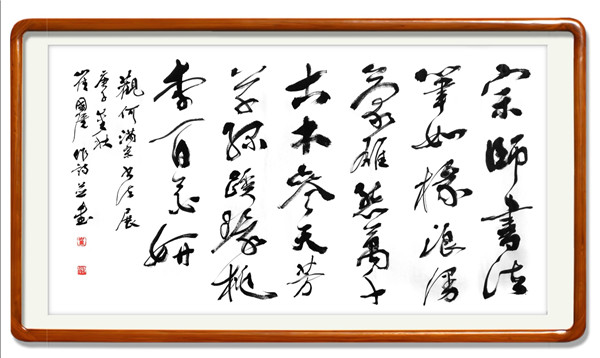 宗師書法
筆如椽浪漫
豪雄態萬千
古木參天芳
草綠蹊桃
李百花妍
觀何滿宗書法展
庚子金秋
崔國作詩並書